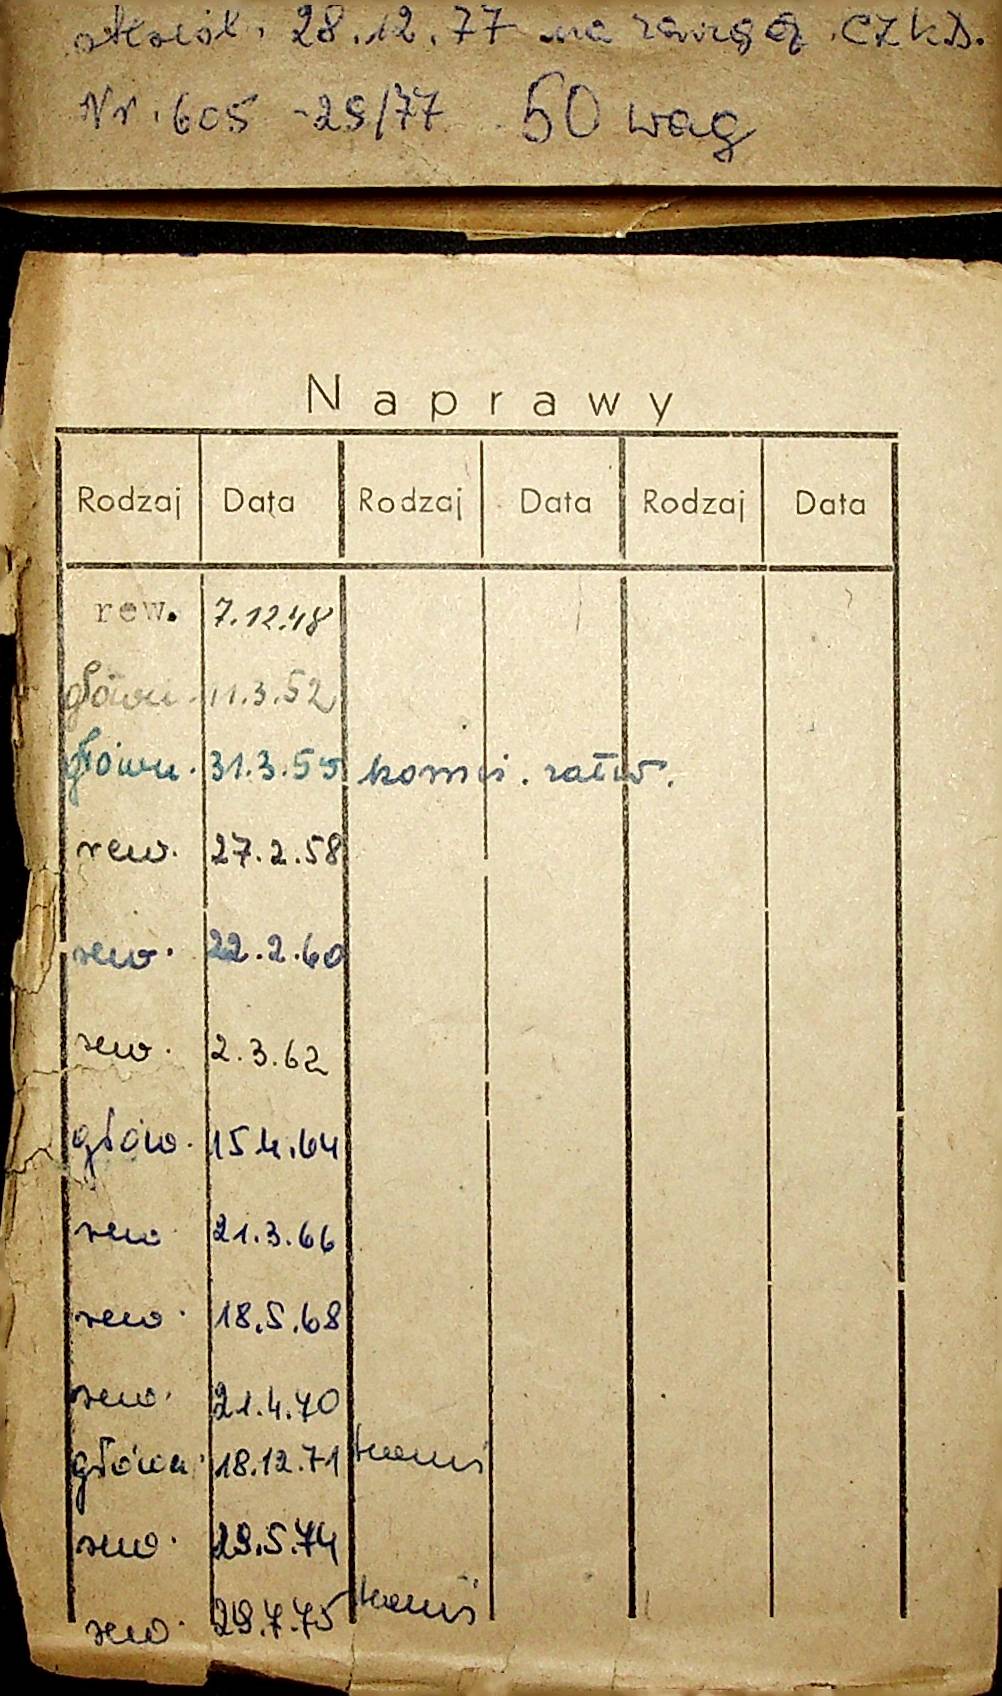 28.12.77 na CZKD.
Nr. 605 -29/77 50 wag
Naprawy
Rodzaj Data Rodzaj Data Rodzaj Data
rew. 7.12.48
główn. 11.3.52
główn. 31.3.55 komis. ratw.
rew. 27.2.58
rew. 22.2.60
rew. 2.3.62
głów. 15.4.64
rew 21.3.66
rew. 18.5.68
rew. 21.4.70
główn. 18.12.71
rew. 29.5.74
rew. 29.7.75